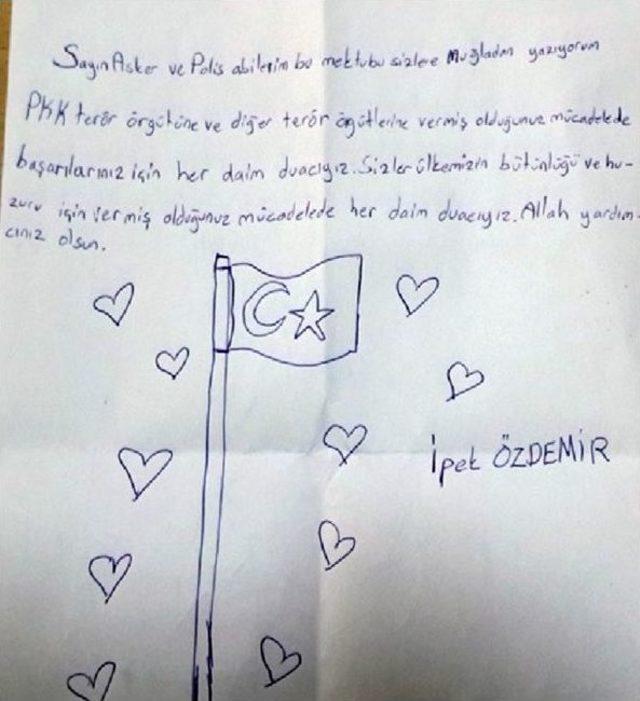 Sayın Asker ve Polis abilerim bu mektubu sizlere Muğladan yazıyorum
PKK terör örgütüne ve diğer terör ögütlerine vermiş olduğunuz mücadelede
başarılarınız için her daim duacıyız. Sizler ülkemizin bütünlüğü ve hu-
zuru için vermiş olduğunuz mücadelede her daim duacıyız. Allah yardım-
cınız olsun.
İpek ÖZDEMİR